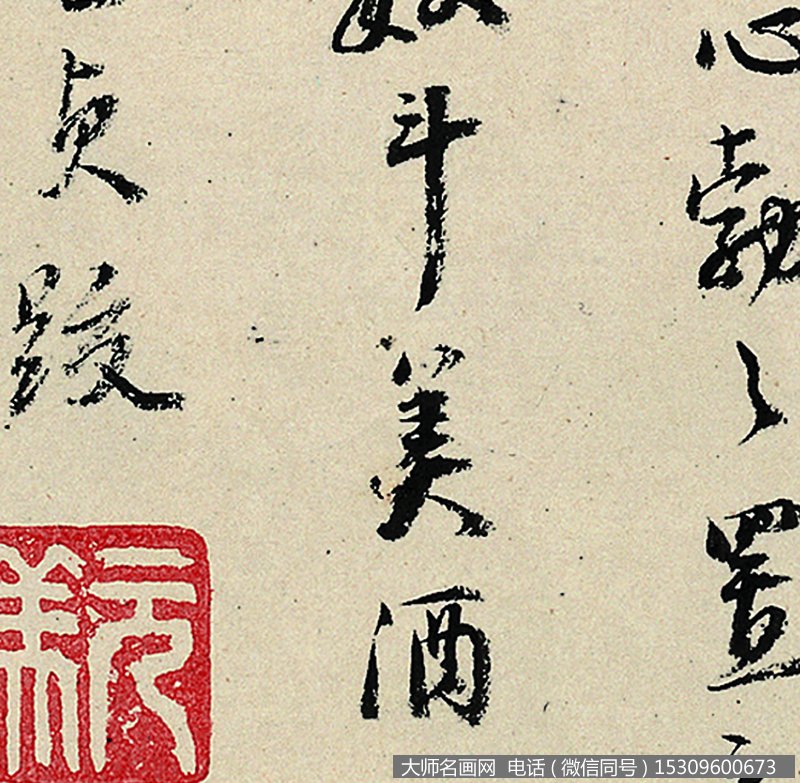 心勃〻置
斗美酒
貞跋
大师名画网 电话（微信同号）15309600673